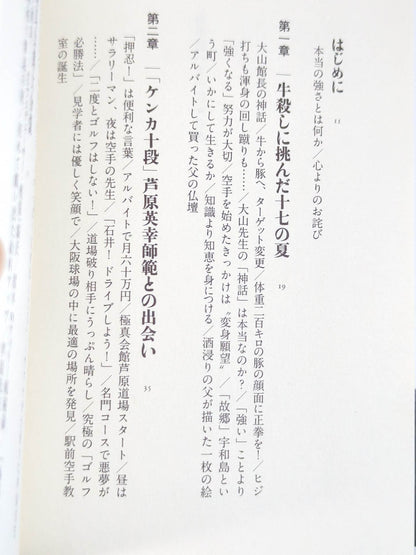 はじめに 11
本当の強さとは何か／心よりのお詫び
第一章 ―牛殺しに挑んだ十七の夏 19
大山館長の神話／牛から豚へ、ターゲット変更／体重二百キロの豚の顔面に正拳を！／ヒジ
打ちも渾身の回し蹴りも……／大山先生の「神話」は本当なのか？／「強い」ことより
「強くなる」努力が大切／空手を始めたきっかけは〝変身願望〟／「故郷」宇和島とい
う町／いかにして生きるか／知識より知恵を身につける／酒浸りの父が描いた一枚の絵
／アルバイトして買った父の仏壇
第二章 ―「ケンカ十段」芦原英幸師範との出会い 35
「押忍！」は便利な言葉／アルバイトで月六十万円／極真会館芦原道場スタート／昼は
サラリーマン、夜は空手の先生／「石井！ドライブしよう！」／名門コースで悪夢が
……／「二度とゴルフはしない！」／道場破り相手にうっぷん晴らし／究極の「ゴルフ
必勝法」／見学者には優しく笑顔で／大阪球場の中に最適の場所を発見／駅前空手教
室の誕生